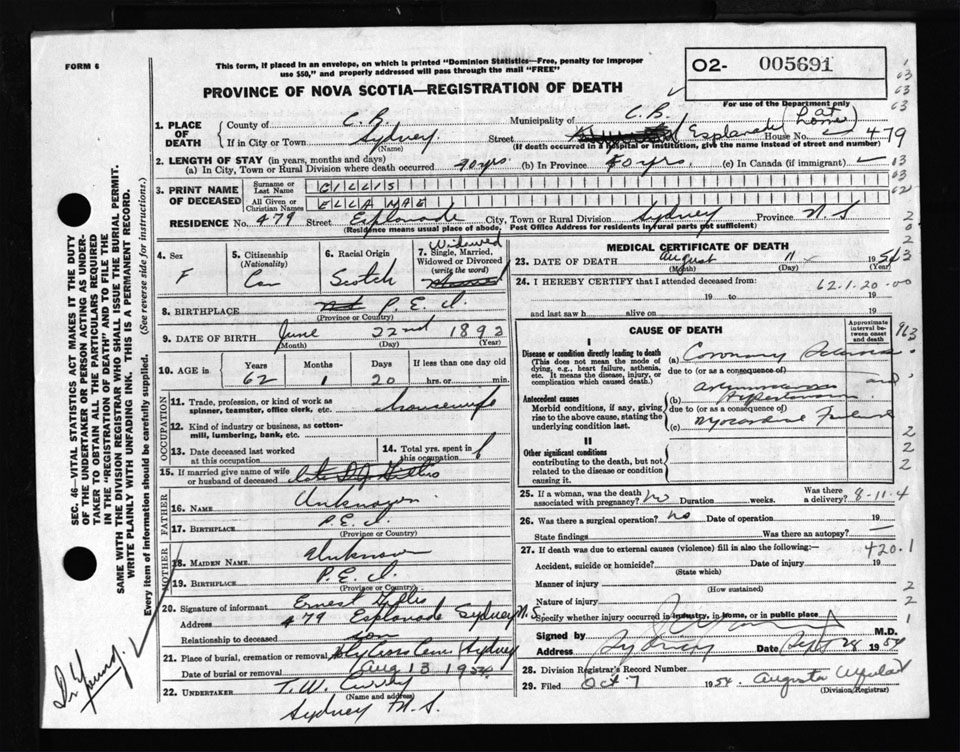 FORM 6
This form, if placed in an envelope, on which is printed "Dominion Statistics—Free, penalty for improper
use $50," and properly addressed will pass through the mail "FREE"
O2- 005691
PROVINCE OF NOVA SCOTIA—REGISTRATION OF DEATH
For use of the Department only
1. PLACE OF DEATH
County of C. B. Municipality of C. B.
If in City or Town Sydney Street Esplanade House No. 479 (at home)
(Name) (If death occurred in a hospital or institution, give the name instead of street and number)
2. LENGTH OF STAY (in years, months and days)
(a) In City, Town or Rural Division where death occurred 40 yrs. (b) In Province 40 yrs. (c) In Canada (if immigrant)
3. PRINT NAME OF DECEASED
Surname or Last Name GILLIS
All Given or Christian Names ELLA MAE
RESIDENCE No. 479 Street Esplanade City, Town or Rural Division Sydney Province N. S
(Residence means usual place of abode. Post Office Address for residents in rural parts not sufficient)
4. Sex
F
5. Citizenship
(Nationality)
Can
6. Racial Origin
Scotch
7. Single, Married,
Widowed or Divorced
(write the word)
Widowed
8. BIRTHPLACE P. E. I.
(Province or Country)
9. DATE OF BIRTH June 22nd 1892
(Month) (Day) (Year)
10. AGE in
Years Months Days If less than one day old
62 1 20 hrs. or min.
OCCUPATION
11. Trade, profession, or kind of work as
spinner, teamster, office clerk, etc. housewife
12. Kind of industry or business, as cotton-
mill, lumbering, bank, etc.
13. Date deceased last worked
at this occupation
14. Total yrs. spent in
this occupation
15. If married give name of wife
or husband of deceased late D J Gillis
FATHER
16. NAME Unknown
17. BIRTHPLACE P. E. I.
MOTHER
18. MAIDEN NAME Unknown
19. BIRTHPLACE P. E. I.
(Province or Country)
20. Signature of informant Ernest Gillis
Address 479 Esplanade Sydney N. S.
Relationship to deceased son
21. Place of burial, cremation or removal Holy Cross Cem Sydney
Date of burial or removal Aug 13 1954
22. UNDERTAKER T. W. Curry
(Name and address)
Sydney N. S.
MEDICAL CERTIFICATE OF DEATH
23. DATE OF DEATH August 11 1954
(Month) (Day) (Year)
24. I HEREBY CERTIFY that I attended deceased from:
62.1.20.00
19 to 19
and last saw h alive on 19
CAUSE OF DEATH
Approximate
interval be-
tween onset
and death
I
Disease or condition directly leading to death
(This does not mean the mode of
dying, e.g., heart failure, asthenia,
etc. It means the disease, injury, or
complication which caused death.)
(a) Coronary Sclerosis
due to (or as a consequence of)
Antecedent causes
Morbid conditions, if any, giving
rise to the above cause, stating the
underlying condition last.
and
(b) Hypertension
due to (or as a consequence of)
(c) Myocardial Failure
II
Other significant conditions
contributing to the death, but not
related to the disease or condition
causing it.
25. If a woman, was the death
associated with pregnancy? no Duration weeks. Was there
a delivery? 8-11-4
26. Was there a surgical operation? no Date of operation 19
State findings Was there an autopsy?
27. If death was due to external causes (violence) fill in also the following:—
420.1
Accident, suicide or homicide? Date of injury 19
(State which)
Manner of injury
(How sustained)
Nature of injury
Specify whether injury occurred in industry, in home, or in public place
Signed by M.D.
Address Sydney Date Sept 28 1954
28. Division Registrar's Record Number
29. Filed Oct 7 1954 Augusta
(Division Registrar)
SEC. 46—VITAL STATISTICS ACT MAKES IT THE DUTY
OF THE UNDERTAKER OR PERSON ACTING AS UNDER-
TAKER TO OBTAIN ALL THE PARTICULARS REQUIRED
IN THE "REGISTRATION OF DEATH" AND TO FILE THE
SAME WITH THE DIVISION REGISTRAR WHO SHALL ISSUE THE BURIAL PERMIT.
WRITE PLAINLY WITH UNFADING INK. THIS IS A PERMANENT RECORD.
Every item of information should be carefully supplied. (See reverse side for instructions.)